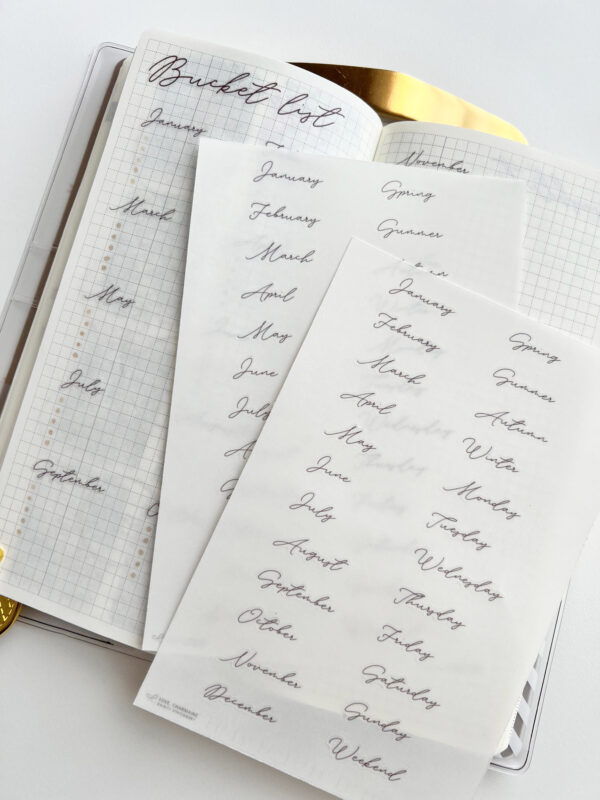 Bucket list
January
March
May
July
September
November
January
February
March
April
May
June
July
Spring
Summer
January
February
March
April
May
June
July
August
September
October
November
December
Spring
Summer
Autumn
Winter
Monday
Tuesday
Wednesday
Thursday
Friday
Saturday
Sunday
Weekend
LOVE, CHARMAINE